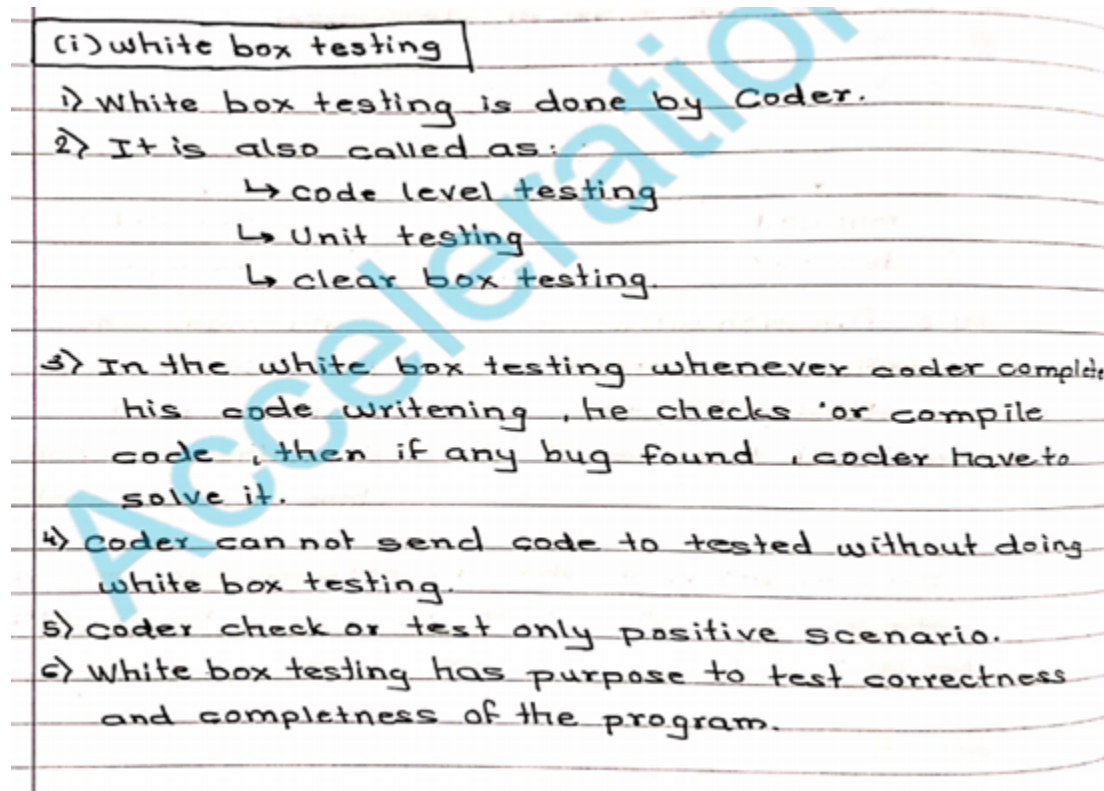 (i) White box testing
1) White box testing is done by Coder.
2) It is also called as:
↳ code level testing
↳ Unit testing
↳ clear box testing.
3) In the white box testing whenever coder complete
his code writening, he checks or compile
code, then if any bug found, coder have to
solve it.
4) coder can not send code to tested without doing
white box testing.
5) coder check or test only positive scenario.
6) White box testing has purpose to test correctness
and completness of the program.
Acceleration